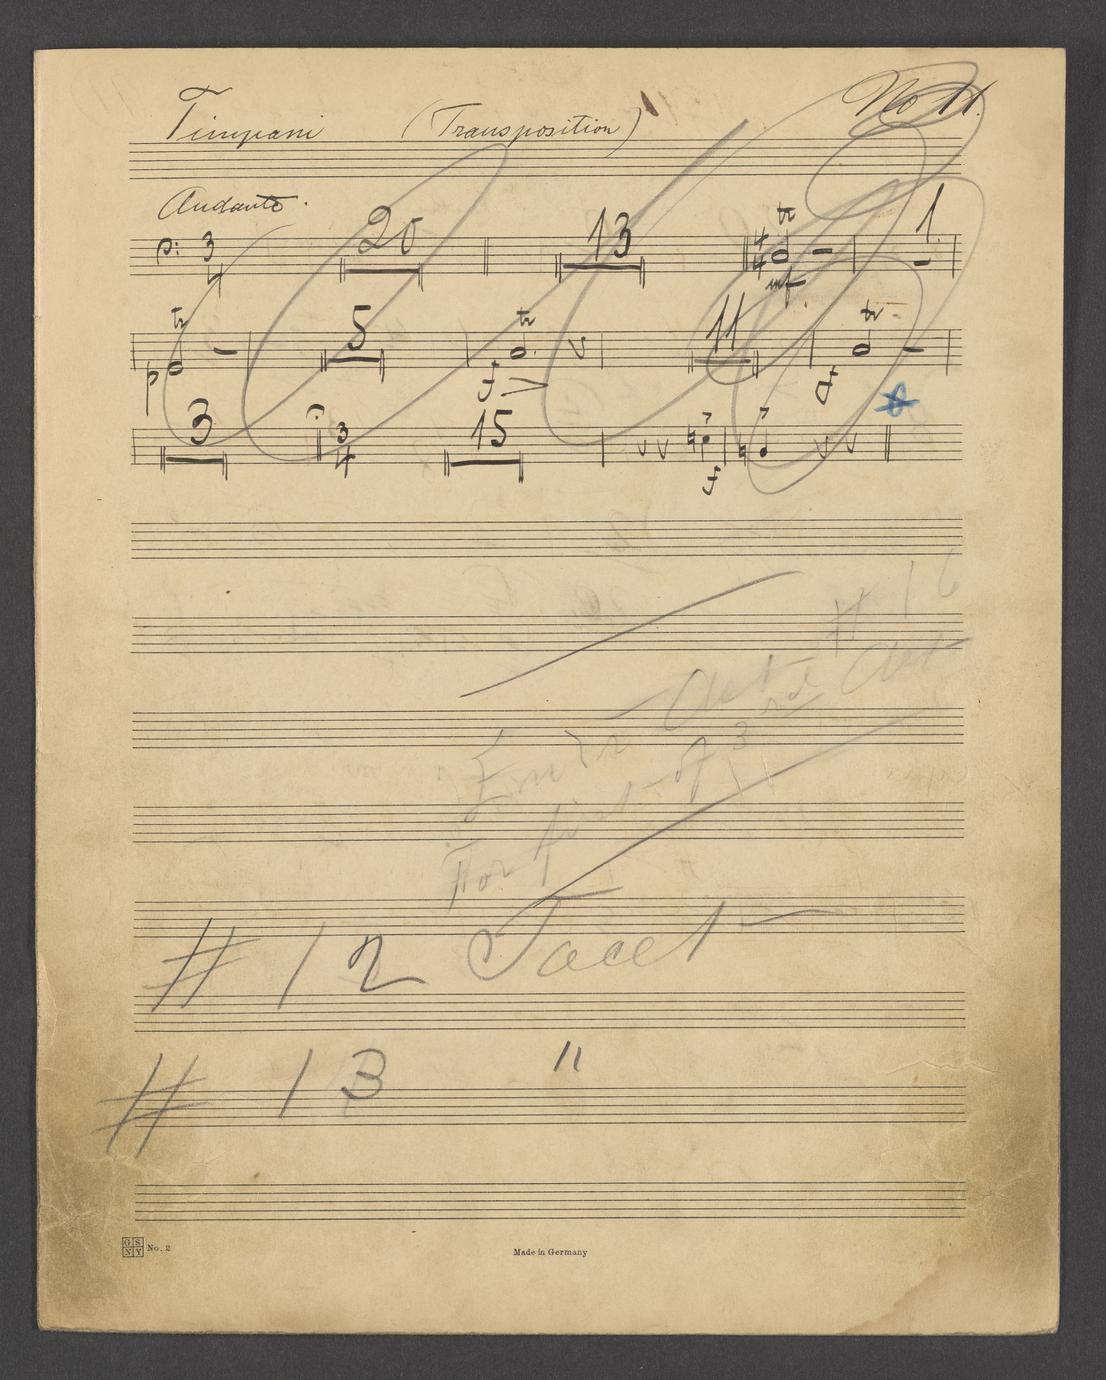 Timpani (Transposition) No 11.
Andante.
3 4 20 13 4 4 tr mf 1
tr p 5 tr f 11 tr f
3 3 4 15 f
# 16
Act
For first of 3rd Act
# 12 Tacet
# 13 "
GS NY No. 2 Made in Germany